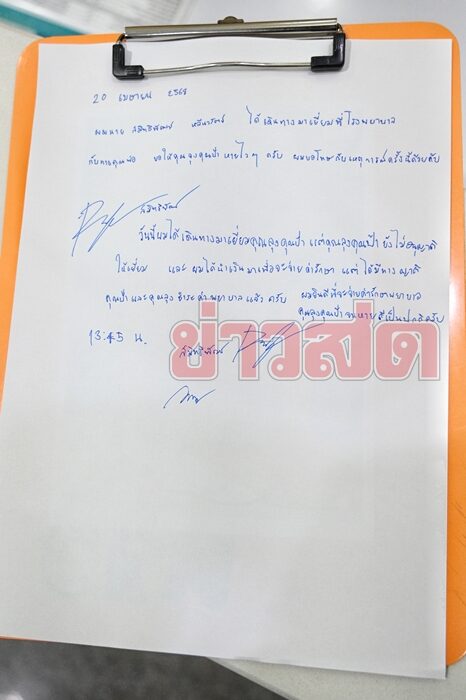 20 เมษายน 2568
ผมนาย ได้เดินทางมาเยี่ยมที่โรงพยาบาล
กับทางคุณพ่อ ขอให้คุณลุงคุณป้า หายไวๆ ครับ ผมขอโทษกับเหตุการณ์ครั้งนี้ด้วยครับ
วันนี้ผมได้เดินทางมาเยี่ยมคุณลุงคุณป้า แต่คุณลุงคุณป้า ยังไม่อนุญาติ
ให้เยี่ยม และ ผมได้นำเงินมาเพื่อจะจ่ายค่ารักษา แต่ ได้มีทางญาติ
คุณป้าและคุณลุง ชำระค่าพยาบาลแล้ว ครับ ผมยินดีที่จะจ่ายค่ารักษาพยาบาล
คุณลุงคุณป้า จนหายดีเป็นปกติครับ
13:45 น.
ข่าวสด